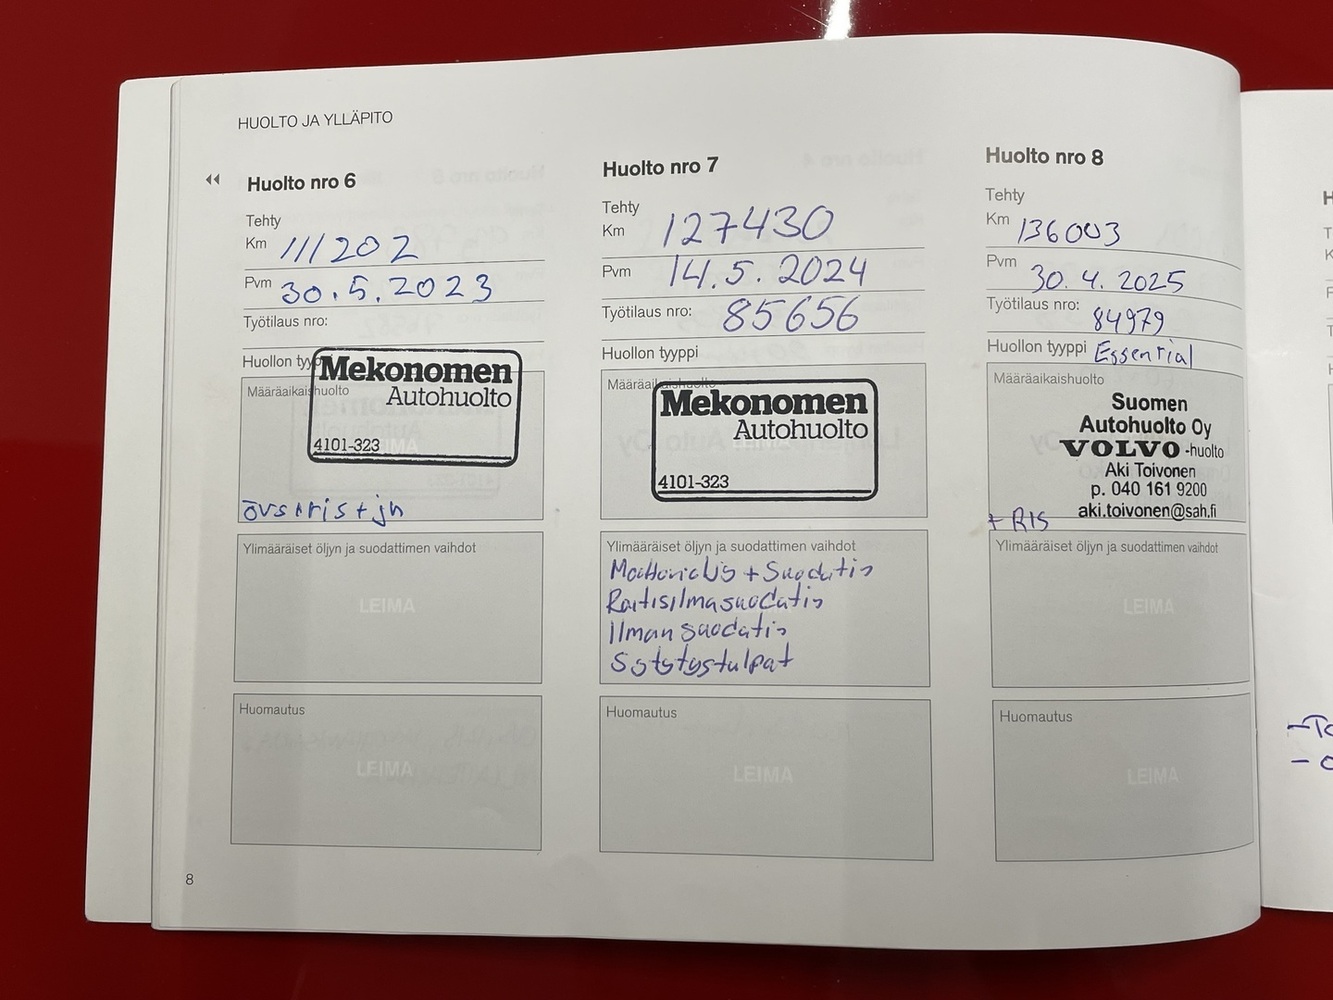 HUOLTO JA YLLÄPITO
Huolto nro 6
Tehty
Km 111202
Pvm 30.5.2023
Työtilaus nro:
Huollon
Määräaikaishuolto
Mekonomen
Autohuolto
4101-323
Ylimääräiset öljyn ja suodattimen vaihdot
LEIMA
Huomautus
LEIMA
8
Huolto nro 7
Tehty
Km 127430
Pvm 14.5.2024
Työtilaus nro: 85656
Huollon tyyppi
Määräaikaishuolto
Mekonomen
Autohuolto
4101-323
Ylimääräiset öljyn ja suodattimen vaihdot
+ Suodatin
Raitisilmasuodatin
Ilman suodatin
Sytytystulpat
Huomautus
LEIMA
Huolto nro 8
Tehty
Km 136003
Pvm 30.4.2025
Työtilaus nro: 84979
Huollon tyyppi Essential
Määräaikaishuolto
Suomen
Autohuolto Oy
VOLVO -huolto
Aki Toivonen
p. 040 161 9200
aki.toivonen@sah.fi
+ RIS
Ylimääräiset öljyn ja suodattimen vaihdot
LEIMA
Huomautus
LEIMA